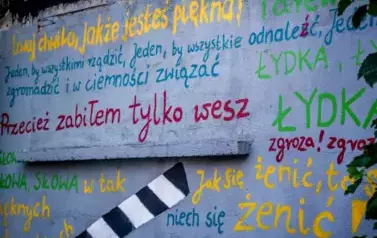 chwilo, jakże jesteś piękna!
Jeden, by wszystkimi rządzić, Jeden, by wszystkie odnaleźć, Jeden,
zgromadzić i w ciemności związać
ŁYDKA,
Przecież zabiłem tylko wesz
ŁYDKA
zgroza! zgroza
SŁOWA, SŁOWA w tak
Jak się żenić, to
niech się
żenić!